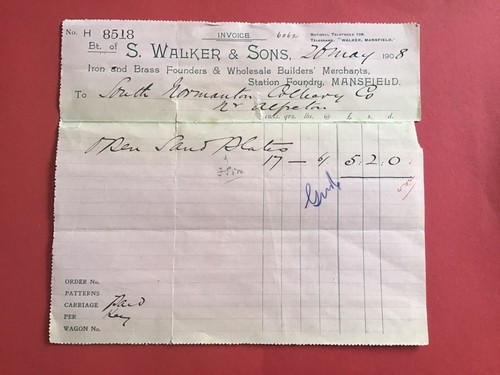 No. H 8518 INVOICE
NATIONAL TELEPHONE 109.
TELEGRAMS: "WALKER, MANSFIELD."
Bt. of S. WALKER & SONS, 26 May 1908
Iron and Brass Founders & Wholesale Builders' Merchants,
Station Foundry, MANSFIELD.
To South Normanton Colliery Co
Nr Alfreton
cwt. qrs. lbs. @ £ s. d.
Open Sand Plates 17 – 6/ 5.2.0.
ORDER No.
PATTERNS
CARRIAGE Paid
PER
WAGON No.